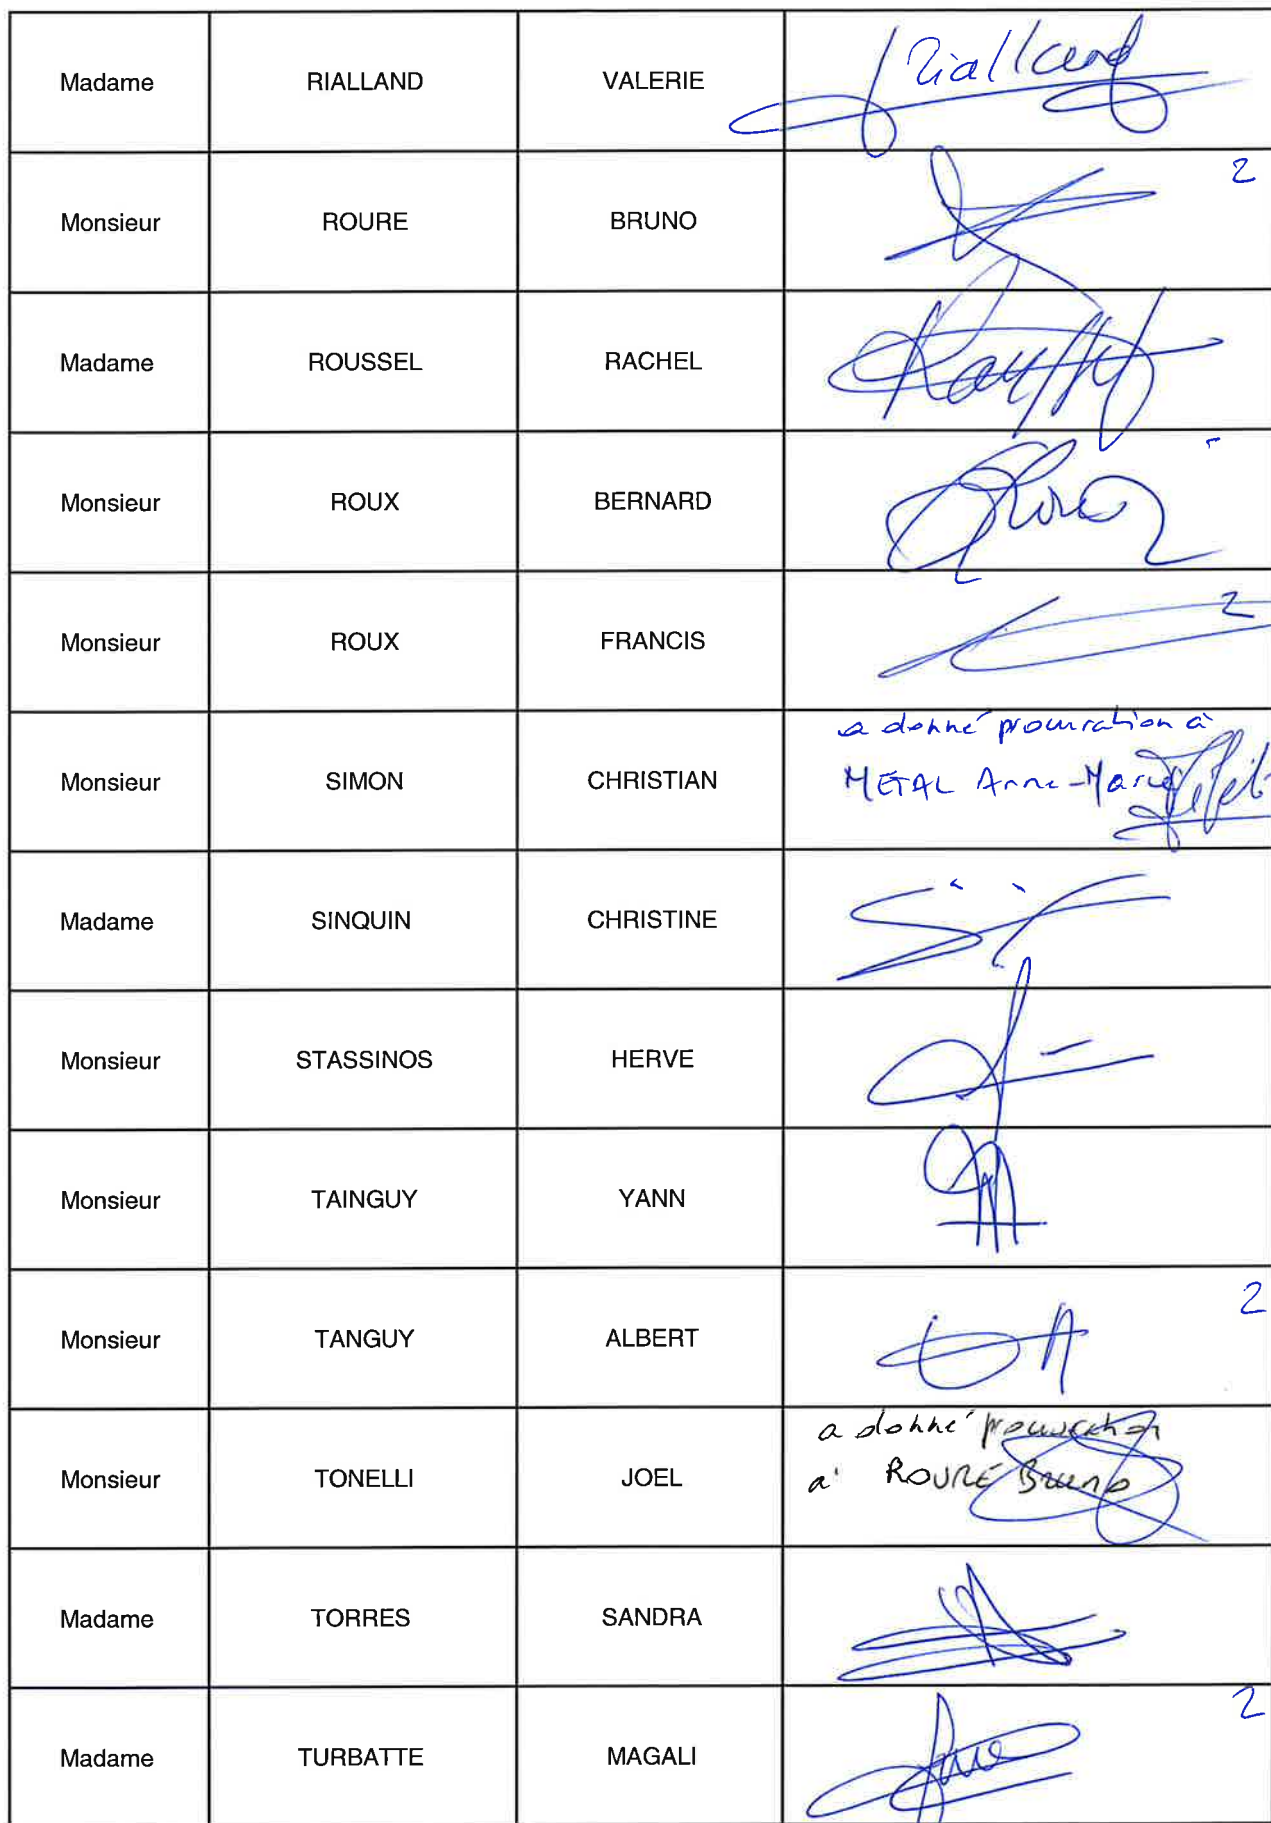 Madame RIALLAND VALERIE Rialland
Monsieur ROURE BRUNO 2
Madame ROUSSEL RACHEL
Monsieur ROUX BERNARD
Monsieur ROUX FRANCIS 2
Monsieur SIMON CHRISTIAN a donné procuration à
METAL Anne-Marie
Madame SINQUIN CHRISTINE
Monsieur STASSINOS HERVE
Monsieur TAINGUY YANN
Monsieur TANGUY ALBERT 2
Monsieur TONELLI JOEL a donné procuration
à ROURE Bruno
Madame TORRES SANDRA
Madame TURBATTE MAGALI 2